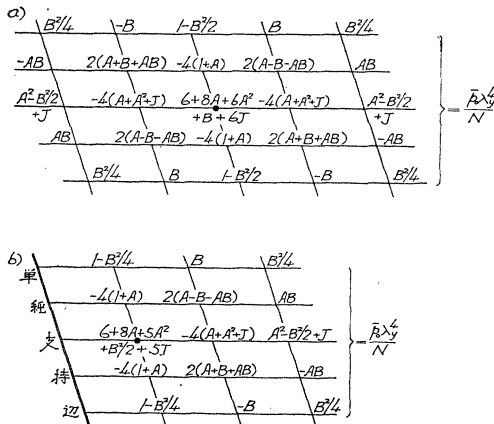 a)
B²/4 -B 1-B²/2 B B²/4
-AB 2(A+B+AB) -4(1+A) 2(A-B-AB) AB
A²-B²/2 +J -4(A+A²+J) 6+8A+6A² +B+6J -4(A+A²+J) A²-B²/2 +J
AB 2(A-B-AB) -4(1+A) 2(A+B+AB) -AB
B²/4 B 1-B²/2 -B B²/4
= p̄λ_y⁴/N
b)
単純支持辺
1-B²/4 B B²/4
-4(1+A) 2(A-B-AB) AB
6+8A+5A² +B²/2+5J -4(A+A²+J) A²-B²/2+J
-4(1+A) 2(A+B+AB) -AB
1-B²/4 -B B²/4
= p̄λ_y⁴/N